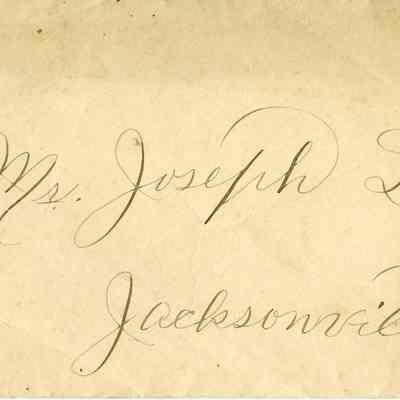 Mr. Joseph
Jacksonvil